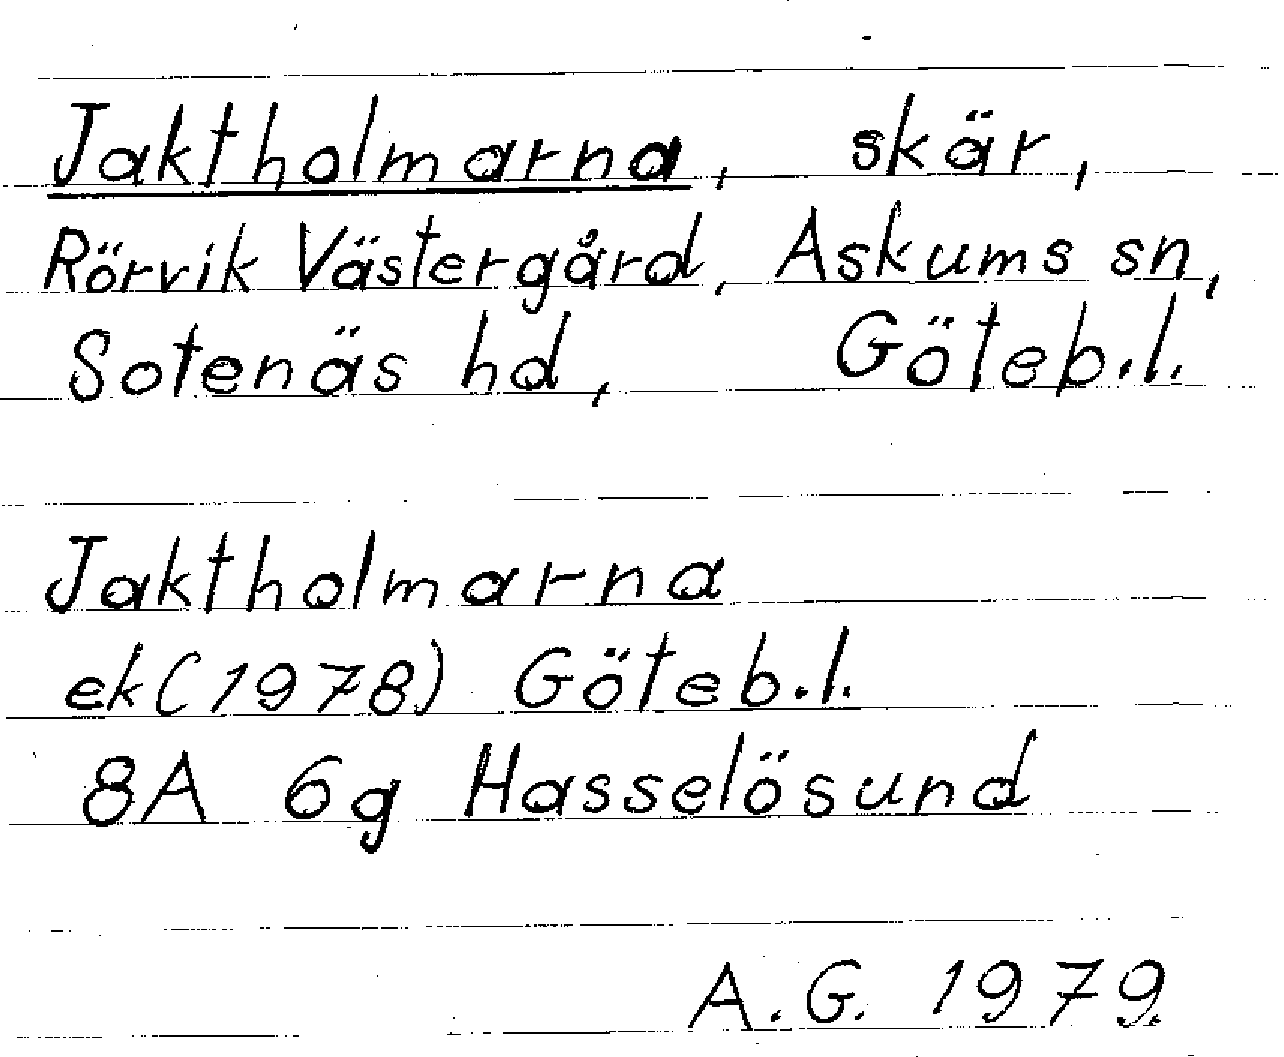 Jaktholmarna, skär,
Rörvik Västergård, Askums sn,
Sotenäs hd, Göteb.l.
Jaktholmarna
ek(1978) Göteb.l.
8A 6g Hasselösund
A.G. 1979.